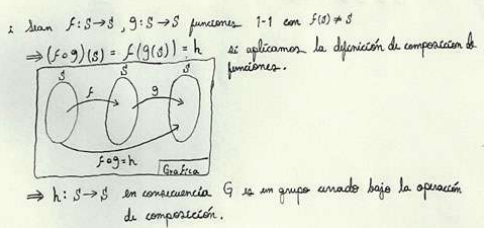 i Sean f: S→S, g: S→S funciones 1-1 con f(S) ≠ S
⇒ (f∘g)(S) = f(g(S)) = h si aplicamos la definición de composición de
funciones.
S S S
f g
f∘g = h
Grafica
⇒ h: S→S en consecuencia G es un grupo cerrado bajo la operación
de composición.